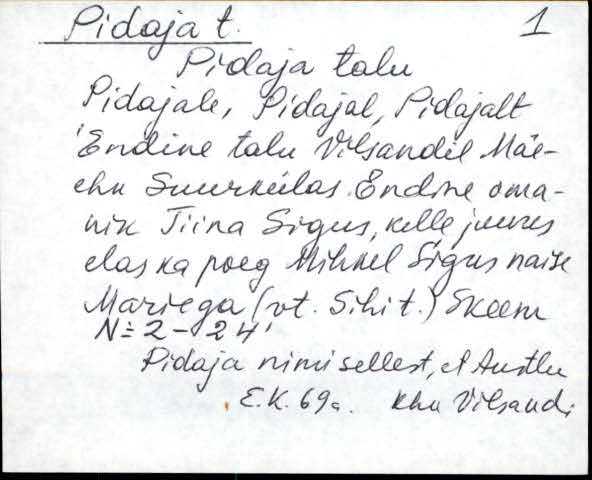 Pidaja t. 1
Pidaja talu
Pidajale, Pidajal, Pidajalt
Endine talu Vilsandil Mäe-
ehk Suurkülas. Endine oma-
nik Tiina Sigus, kelle juures
elas ka poeg Mihkel Sigus naise
Mariega (vt. Sihi t.) Skeem
N= 2 - 24
Pidaja nimi sellest, et Austlu
E.K. 69a. khk Vilsandi